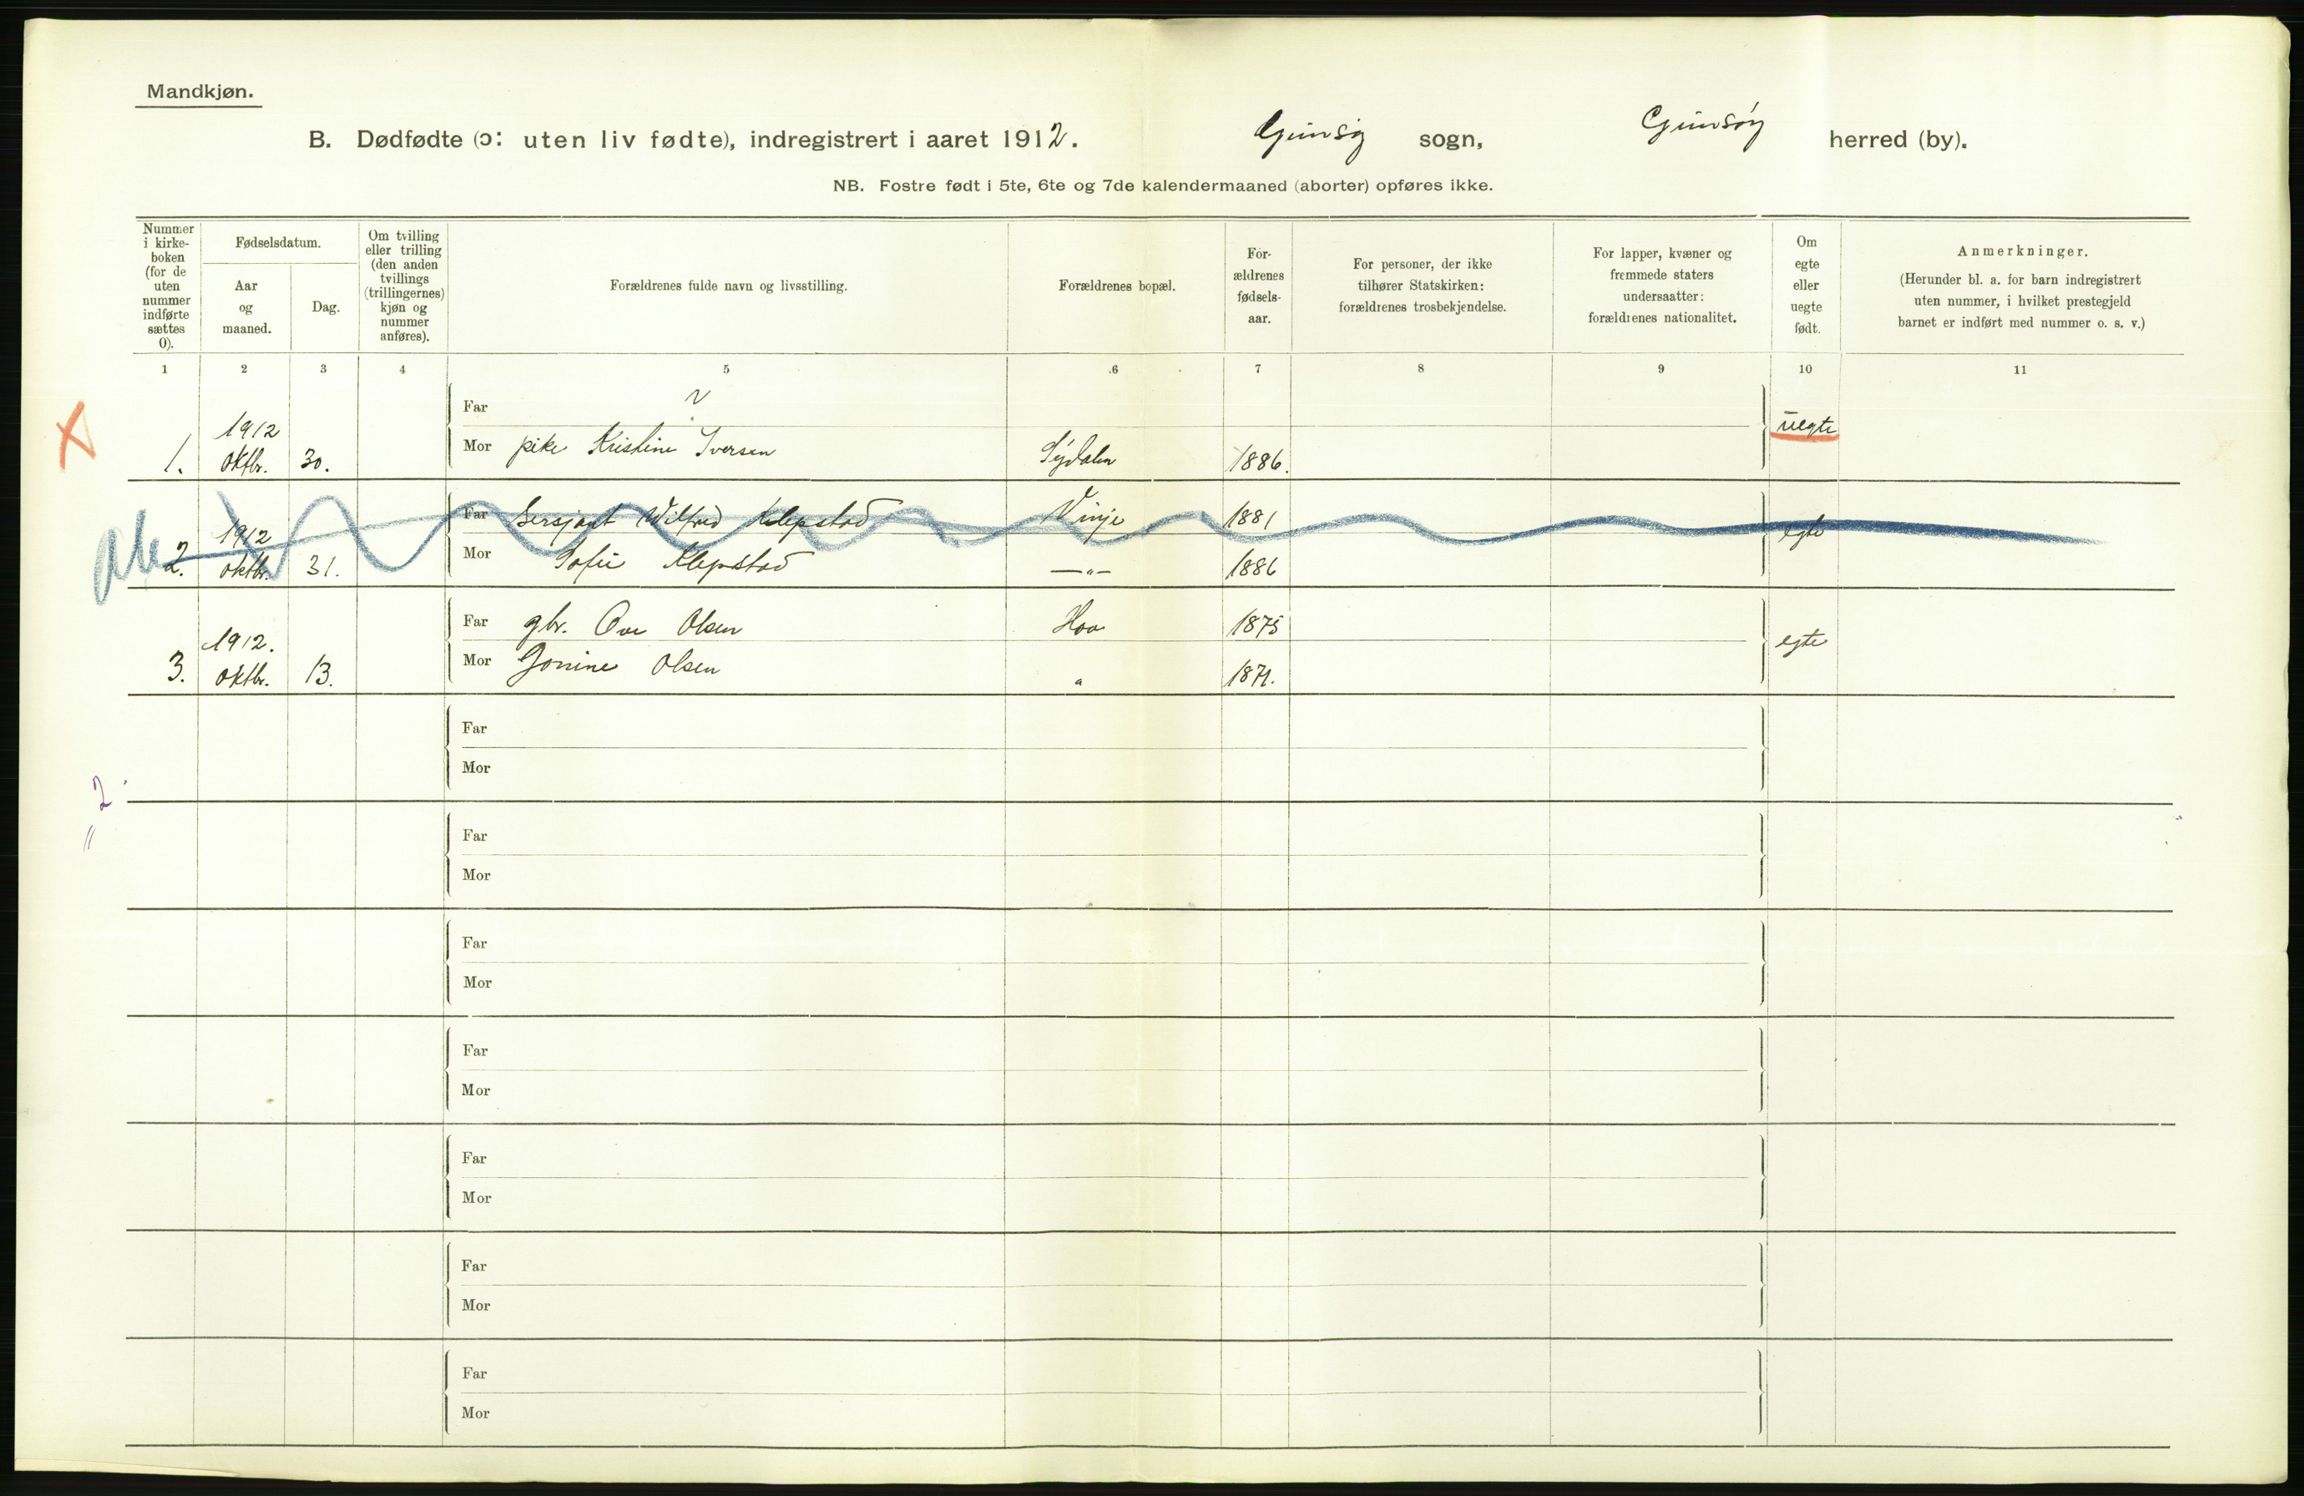 Mandkjøn.
B. Dødfødte (ɔ: uten liv fødte), indregistrert i aaret 1912. Gimsø sogn, Gimsøy herred (by).
NB. Fostre født i 5te, 6te og 7de kalendermaaned (aborter) opføres ikke.
Nummer
i kirke-
boken
(for de
uten
nummer
indførte
sættes
0).
Fødselsdatum.
Aar
og
maaned.
Dag.
Om tvilling
eller trilling
(den anden
tvillings
(trillingernes)
kjøn og
nummer
anføres).
Forældrenes fulde navn og livsstilling.
Forældrenes bopæl.
For-
ældrenes
fødsels-
aar.
For personer, der ikke
tilhører Statskirken:
forældrenes trosbekjendelse.
For lapper, kvæner og
fremmede staters
undersaatter:
forældrenes nationalitet.
Om
egte
eller
uegte
født.
Anmerkninger.
(Herunder bl. a. for barn indregistrert
uten nummer, i hvilket prestegjeld
barnet er indført med nummer o. s. v.)
1 2 3 4 5 6 7 8 9 10 11
Far
1912 uegte
1. oktbr. 30. Mor pike Kristine Iversen Sydalen 1886.
Far Sersjant Wilfred Klepstad Vinje 1881
1912 egte
2. oktbr. 31. Mor Sofie Klepstad —"— 1886
Far gbr. Ove Olsen Hov 1875
1912. egte
3. oktbr. 13. Mor Jonine Olsen " 1871.
Far
Mor
2
Far
Mor
Far
Mor
Far
Mor
Far
Mor
Far
Mor
Far
Mor